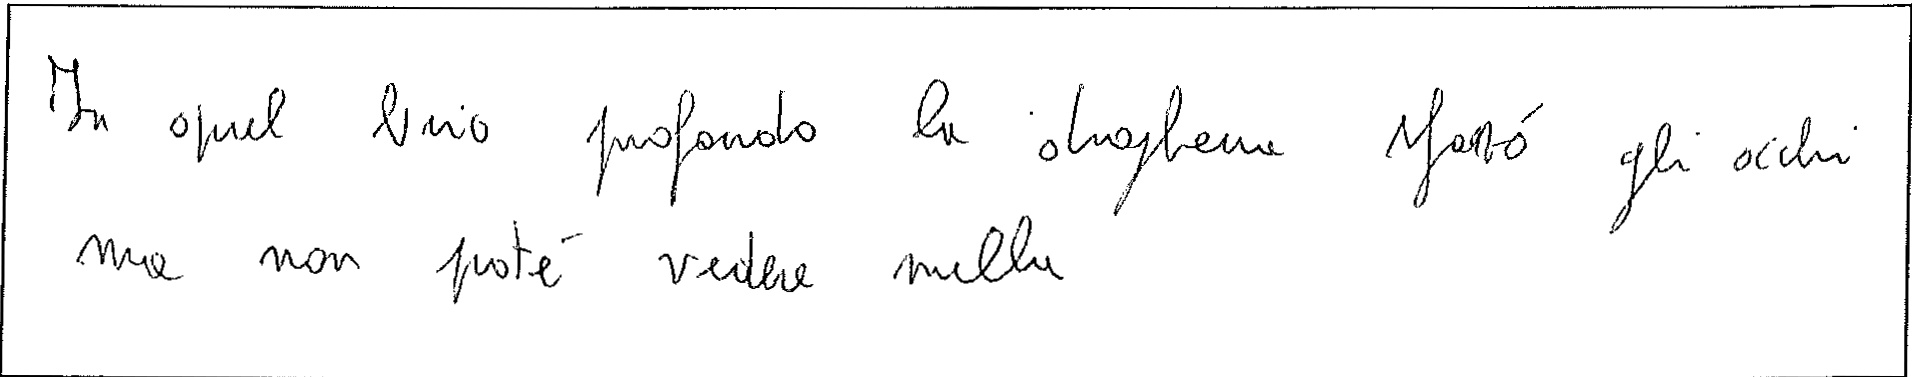 In quel buio profondo la draghema sfozó gli occhi
ma non poté vedere nulla